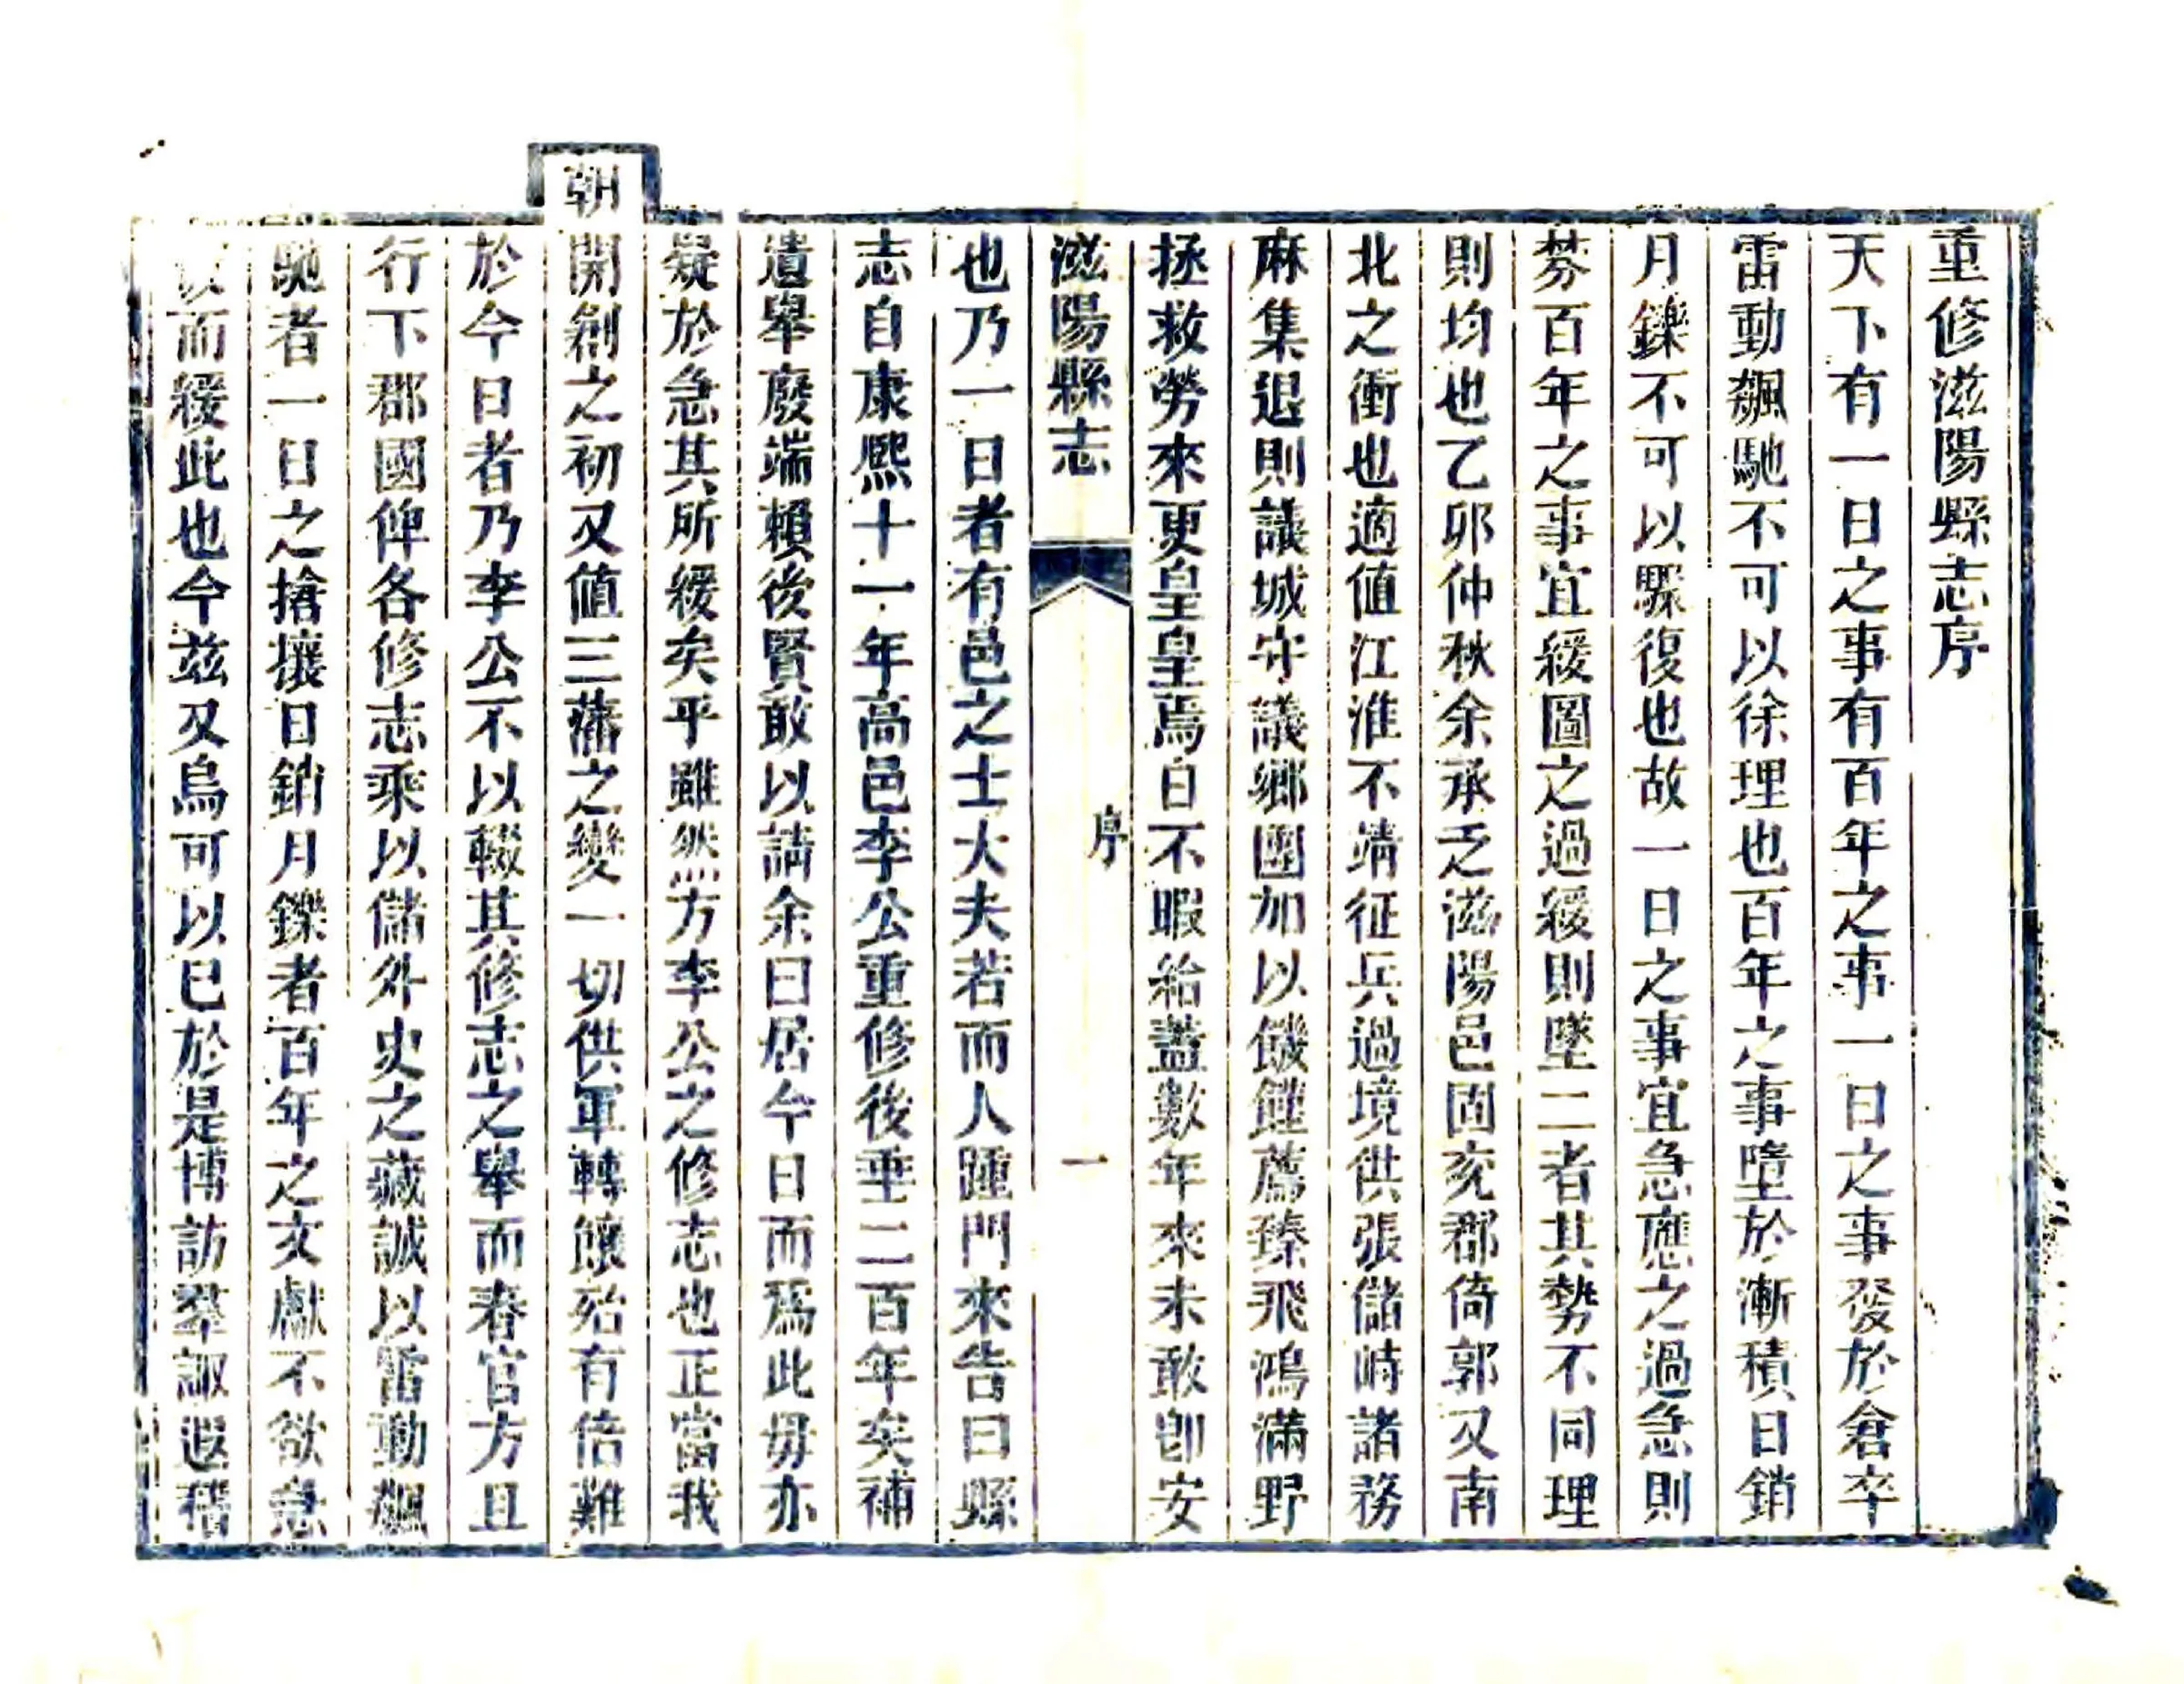 重修滋陽縣志序
天下有一日之事有百年之事一日之事發於倉卒
雷動飆馳不可以徐理也百年之事墮於漸積日銷
月鑠不可以驟復也故一日之事宜急應之過急則
棼百年之事宜緩圖之過緩則墜二者其勢不同理
則均也乙卯仲秋余承乏滋陽邑固兖郡倚郭又南
北之衝也適值江淮不靖征兵過境供張儲峙諸務
麻集退則議城守議鄉團加以饑饉薦臻飛鴻滿野
拯救勞來更皇皇焉日不暇給蓋數年來未敢卽安
滋陽縣志 序 一
也乃一日者有邑之士大夫若而人踵門來告曰縣
志自康熙十一年高邑李公重修後垂二百年矣補
遺舉廢端賴後賢敢以請余曰居今日而爲此毋亦
疑於急其所緩矣乎雖然方李公之修志也正當我
朝開創之初又值三藩之變一切供軍轉饟殆有倍難
於今日者乃李公不以輟其修志之舉而春官方且
行下郡國俾各修志乘以儲外史之藏誠以雷動飆
馳者一日之搶攘日銷月鑠者百年之文獻不欲急
而緩此也今茲又烏可以已於是博訪羣諏遐稽